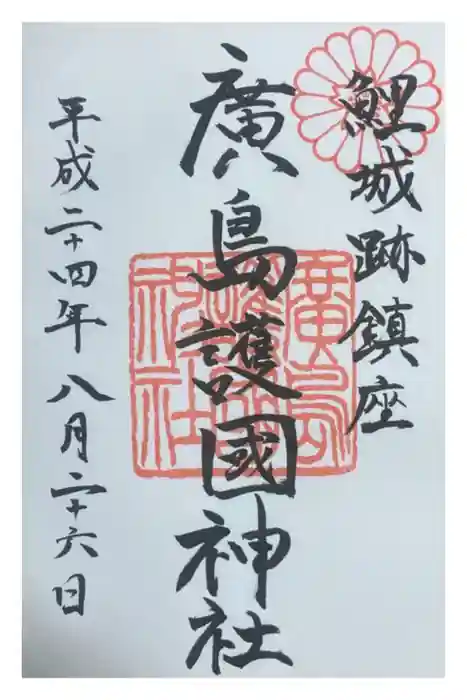 鯉城跡鎮座
廣島護國神社
平成二十四年八月二十六日
廣島
護國
神社